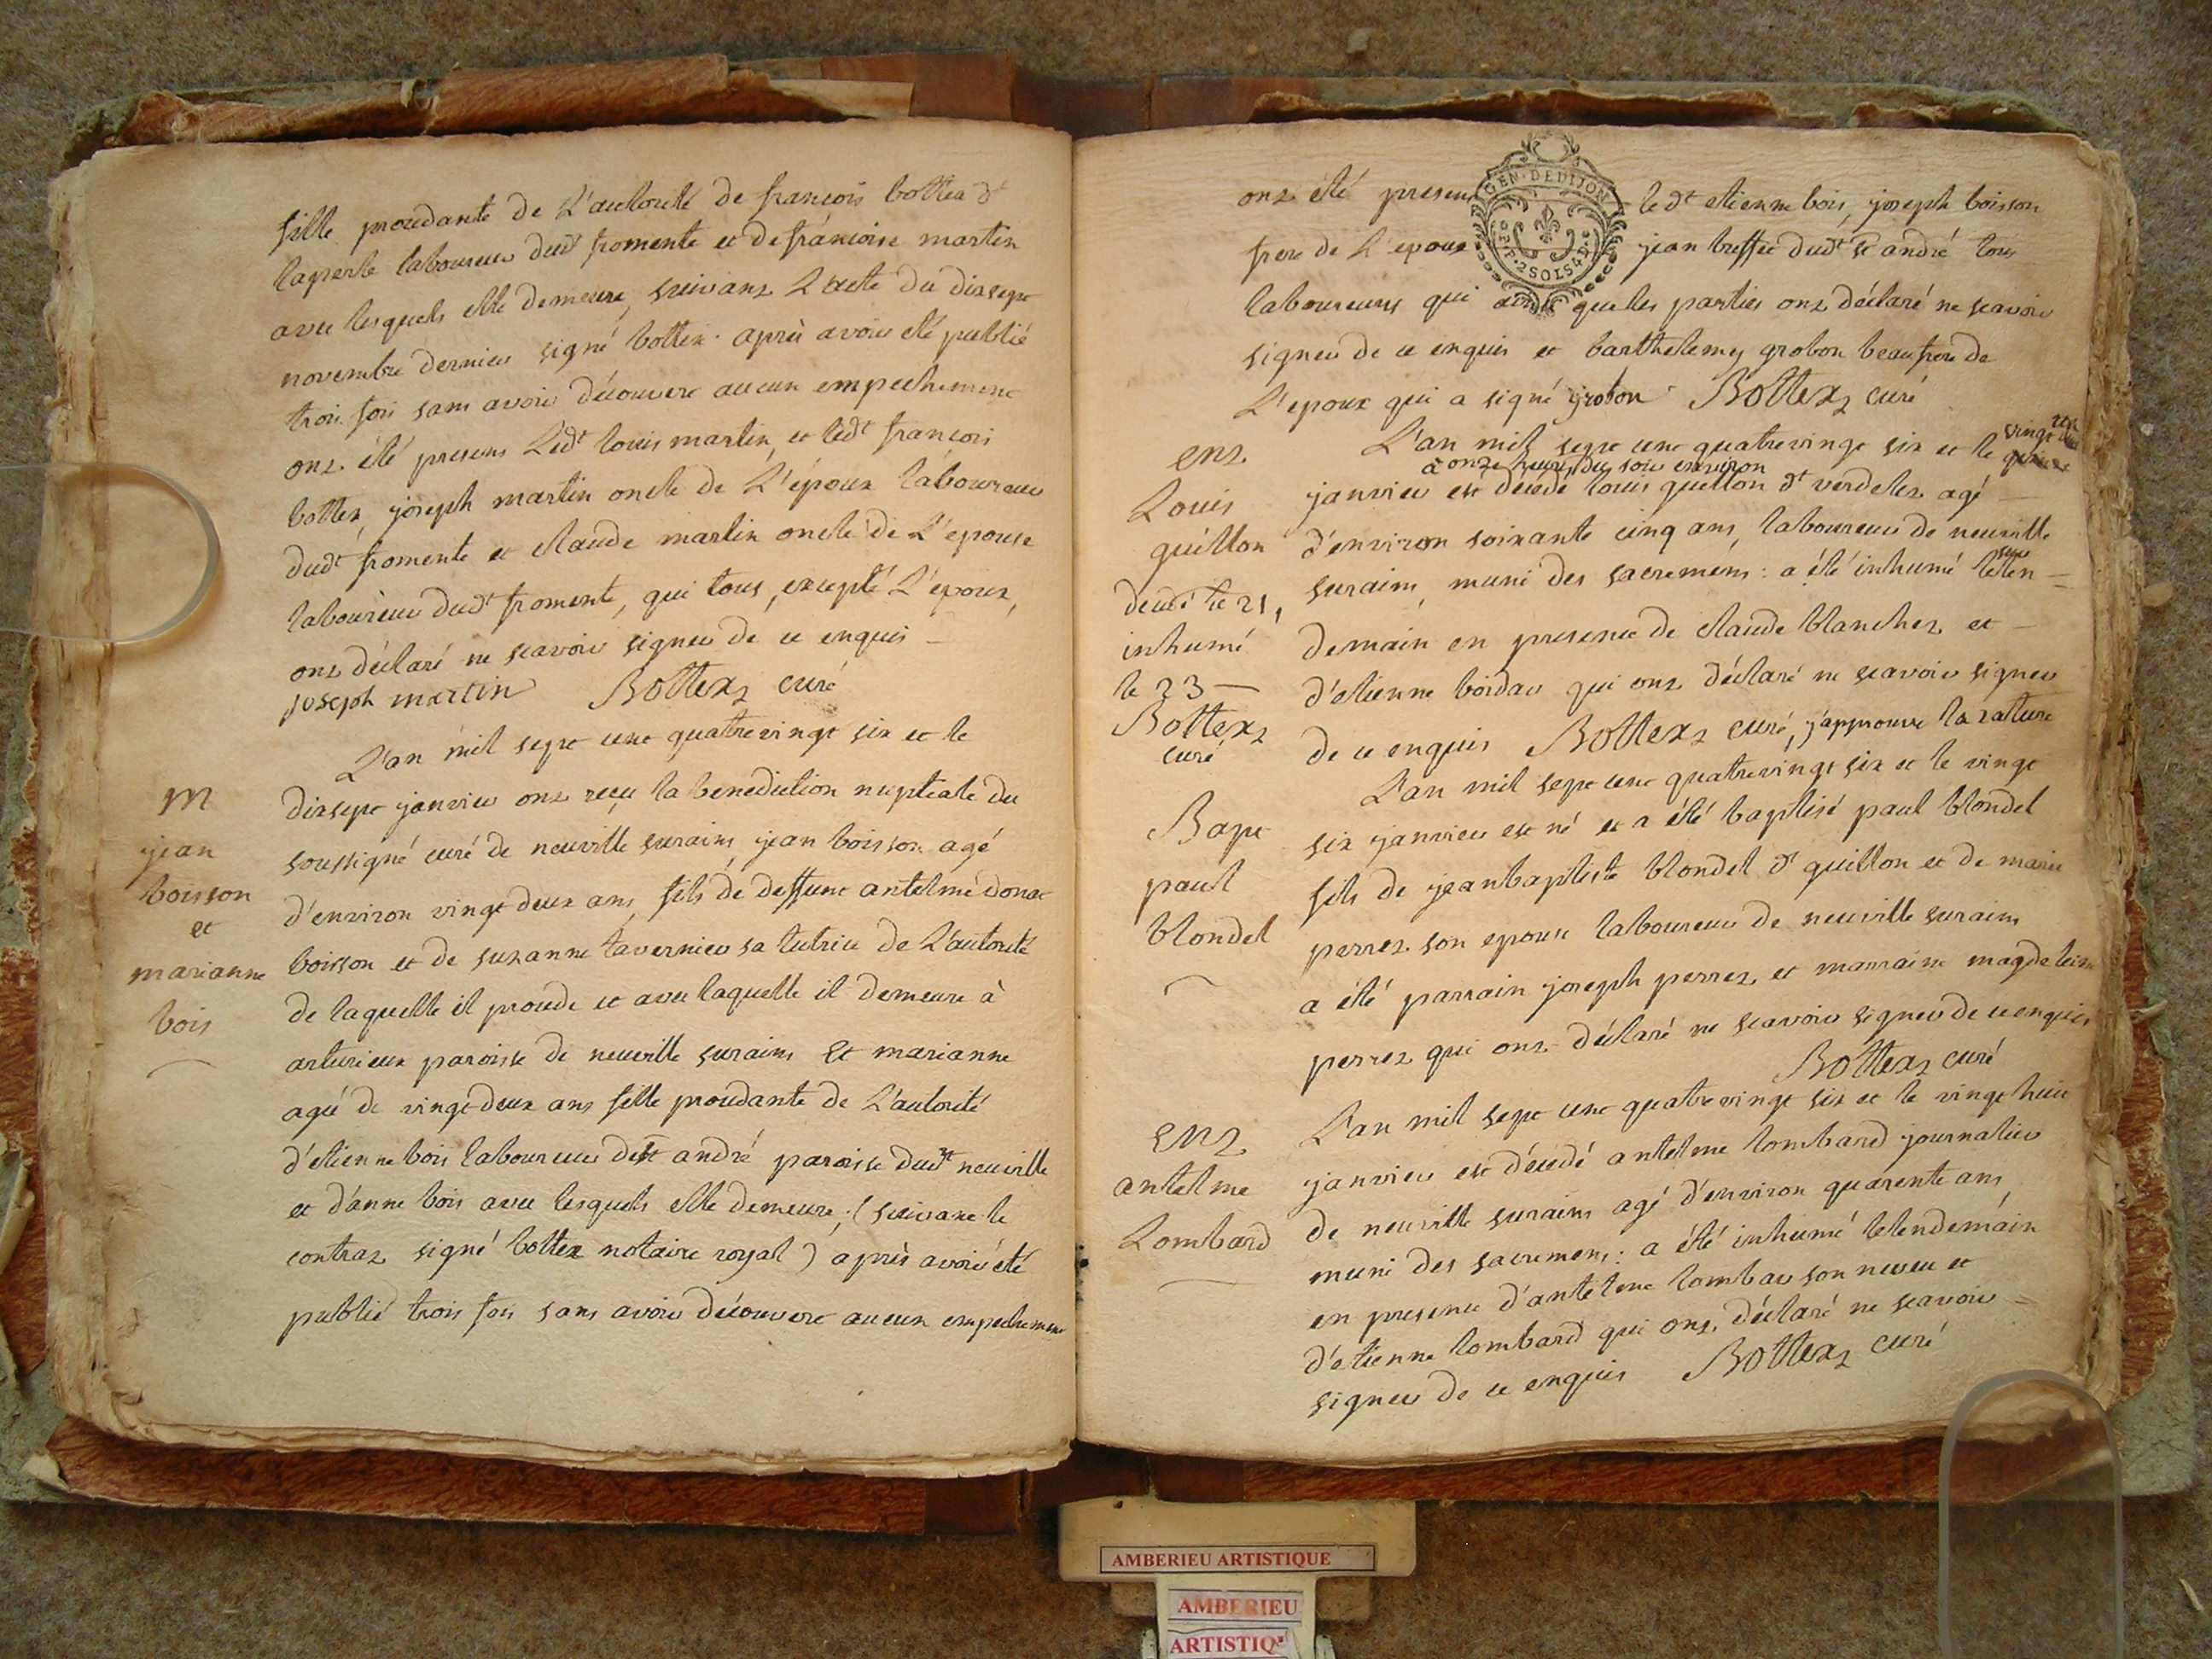 fille procedante de L'autorité de francois bottex dt
laperle laboureur dudt fromente et de francoise martin
avec lesquels elle demeure, suivant L'acte du dixsept
novembre dernier signé bottex. après avoir été publié
trois fois sans avoir découvert aucun empechement
ont été presens Ledt louis martin, et ledt francois
bottex, joseph martin oncle de L'époux laboureur
dudt fromente et claude martin oncle de L'epouse
laboureur dudt fromente, qui tous, excepté L'époux,
ont déclaré ne scavoir signer de ce enquis
joseph martin Bottex curé
L'an mil sept cent quatrevingt six et le
M
jean
boisson
et
marianne
bois
dixsept janvier ont reçu la benediction nuptiale du
soussigné curé de neuville surains jean boisson agé
d'environ vingt deux ans, fils de deffunt antelme donat
boisson et de suzanne tavernier sa tutrice de L'autorité
de laquelle il procede et avec laquelle il demeure à
arturieux paroisse de neuville surains Et marianne
agée de vingt deux ans fille procedante de L'autorité
d'etienne bois laboureur de st andré paroisse dudt neuville
et d'anne bois avec lesquels elle demeure; (suivant le
contrat signé bottex notaire royal) après avoir été
publié trois fois sans avoir découvert aucun empechement
GEN·DE DIJON
2 SOLS 4 D
ont été presens ledt etienne bois, joseph boisson
frere de L'epoux jean buffet dudt st andré tous
laboureurs qui ainsi que les parties ont déclaré ne scavoir
signer de ce enquis et barthelemy grobon beaufrere de
L'epoux qui a signé grobon Bottex curé
ent
Louis
guillon
decedé le 21,
inhumé
le 23
Bottex
curé
L'an mil sept cent quatrevingt six et le vingt un
à onze heures du soir environ
janvier est décédé louis guillon dt verdelet agé
d'environ soixante cinq ans, laboureur de neuville
surains, muni des sacremens: a été inhumé le surlen=
demain en presence de claude blanchet et
d'etienne boidar qui ont déclaré ne scavoir signer
de ce enquis Bottex curé, j'approuve la rature
Bapt
paul
blondel
L'an mil sept cent quatrevingt six et le vingt
six janvier est né et a été baptisé paul blondel
fils de jeanbaptiste blondel dt guillon et de marie
perret son epouse laboureur de neuville surains
a été parrain joseph perret, et marraine magdeleine
perret qui ont déclaré ne scavoir signer de ce enquis
Bottex curé
ent
antelme
Lombard
L'an mil sept cent quatrevingt six et le vingt huit
janvier est décédé antelme lombard journalier
de neuville surains agé d'environ quarente ans,
muni des sacremens: a été inhumé lelendemain
en presence d'antelme lombar son neveu et
d'etienne lombard qui ont déclaré ne scavoir
signer de ce enquis Bottex curé
AMBERIEU ARTISTIQUE
AMBERIEU
ARTISTIQ